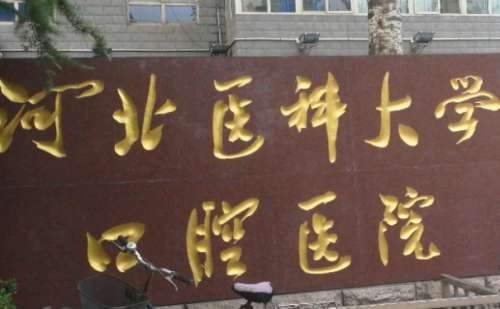 河北医科大学
口腔医院